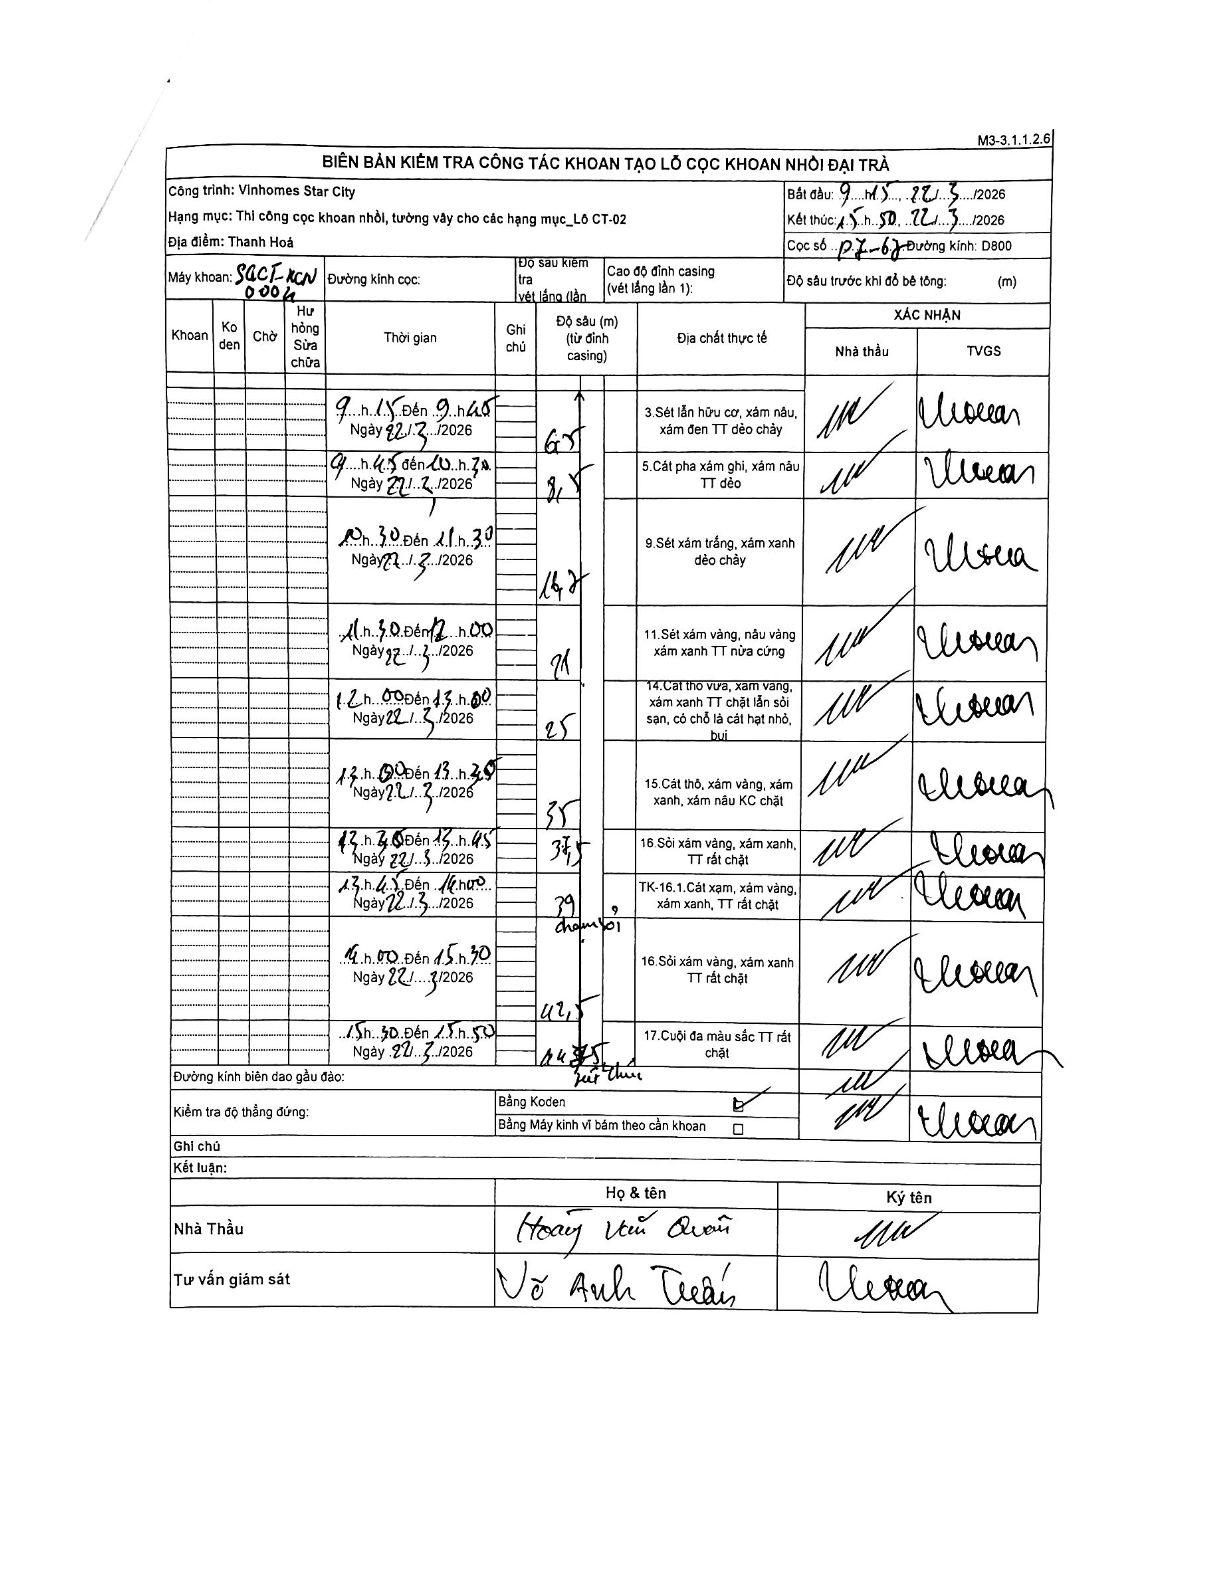 M3-3.1.1.2.6
BIÊN BẢN KIỂM TRA CÔNG TÁC KHOAN TẠO LỖ CỌC KHOAN NHỒI ĐẠI TRÀ
Công trình: Vinhomes Star City
Hạng mục: Thi công cọc khoan nhồi, tường vây cho các hạng mục_Lô CT-02
Địa điểm: Thanh Hoá
Bắt đầu: 9 h 15, 22/3/2026
Kết thúc: 15 h 50, 22/3/2026
Cọc số P7-67 Đường kính: D800
Máy khoan: SGCT-KCN
0004
Đường kính cọc:
Độ sâu kiểm
tra
vét lắng (lần
Cao độ đỉnh casing
(vét lắng lần 1):
Độ sâu trước khi đổ bê tông: (m)
Khoan
Ko
den
Chờ
Hư
hỏng
Sửa
chữa
Thời gian
Ghi
chú
Độ sâu (m)
(từ đỉnh
casing)
Địa chất thực tế
XÁC NHẬN
Nhà thầu
TVGS
9 h 15 Đến 9 h 45
Ngày 22/3/2026
6,5
3.Sét lẫn hữu cơ, xám nâu,
xám đen TT dẻo chảy
9 h 45 đến 10 h 30
Ngày 22/3/2026
8,5
5.Cát pha xám ghi, xám nâu
TT dẻo
10 h 30 Đến 11 h 30
Ngày 22/3/2026
16,7
9.Sét xám trắng, xám xanh
dẻo chảy
11 h 30 Đến 12 h 00
Ngày 22/3/2026
21
11.Sét xám vàng, nâu vàng
xám xanh TT nửa cứng
12 h 00 Đến 13 h 00
Ngày 22/3/2026
25
14.Cát thô vừa, xám vàng,
xám xanh TT chặt lẫn sỏi
sạn, có chỗ là cát hạt nhỏ,
bụi
13 h 00 Đến 13 h 30
Ngày 22/3/2026
35
15.Cát thô, xám vàng, xám
xanh, xám nâu KC chặt
13 h 30 Đến 13 h 45
Ngày 22/3/2026
37,5
16.Sỏi xám vàng, xám xanh,
TT rất chặt
13 h 45 Đến 14 h 00
Ngày 22/3/2026
39
TK-16.1.Cát xạm, xám vàng,
xám xanh, TT rất chặt
chạm sỏi
14 h 00 Đến 15 h 30
Ngày 22/3/2026
42,5
16.Sỏi xám vàng, xám xanh
TT rất chặt
15 h 30 Đến 15 h 50
Ngày 22/3/2026
17.Cuội đa màu sắc TT rất
chặt
kết thúc
Đường kính biên dao gầu đào:
Kiểm tra độ thẳng đứng:
Bằng Koden
Bằng Máy kinh vĩ bám theo cần khoan
Ghi chú
Kết luận:
Họ & tên
Ký tên
Nhà Thầu
Hoàng Văn Quân
Tư vấn giám sát
Võ Anh Tuấn